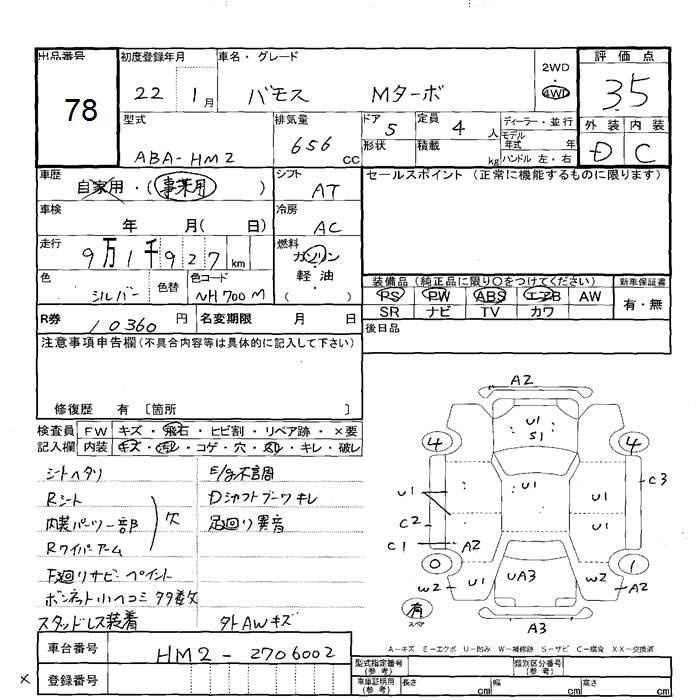 出品番号
78
初度登録年月
22 1月
車名・グレード
バモス Mターボ
2WD
・
4WD
評価点
3.5
外装 内装
D C
型式
ABA-HM2
排気量
656 cc
ドア 5
形状
定員 4 人
積載 kg
ディーラー・並行
モデル年式 年
ハンドル 左・右
車歴
自家用・(事業用)
シフト
AT
セールスポイント (正常に機能するものに限ります)
車検
年 月( 日)
冷房
AC
走行
9万1千927 km
燃料
ガソリン
軽油
( )
色
シルバー
色替
色コード
NH700M
装備品 (純正品に限り○をつけてください)
新車保証書
PS PW ABS エアB AW
有・無
SR ナビ TV カワ
R券
10360 円
名変期限 月 日
後日品
注意事項申告欄(不具合内容等は具体的に記入して下さい)
修復歴 有 〔箇所 〕
検査員
記入欄
FW キズ・飛石・ヒビ割・リペア跡・×要
内装 キズ・汚レ・コゲ・穴・スレ・キレ・破レ
シートヘタリ
E/g不調
Rシート
Dシャフトブーツキレ
内装パーツ一部 欠
足回り異音
Rワイパーアーム
下廻りサビ・ペイント
ボンネット小ヘコミ タタ数欠
スタッドレス装着 タトAWキズ
車台番号
HM2-2706002
登録番号
×
A2
U1
S1
4 4
U1
U1
C3
C2
U1
C1
A2
0 1
W2
U1
UA3
W2
A2
有
スペア
A3
A-キズ E-エクボ U-凹み W-補修跡 S-サビ C-腐食 XX-交換済
型式指定番号
(参考)
類別区分番号
(参考)
車庫証明用
(参考)
長さ cm
幅 cm
高さ cm